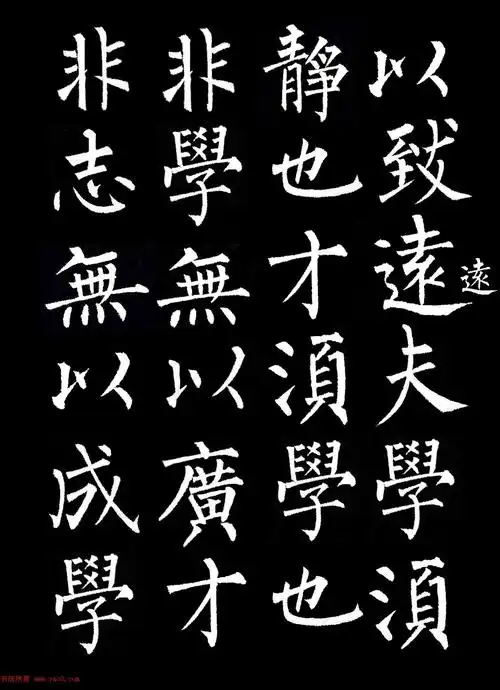 以致遠夫學須
靜也才須學也
非學無以廣才
非志無以成學
遠